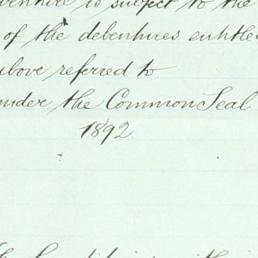 is subject to the
of the debentures entitled
above referred to
under the Common Seal
1892